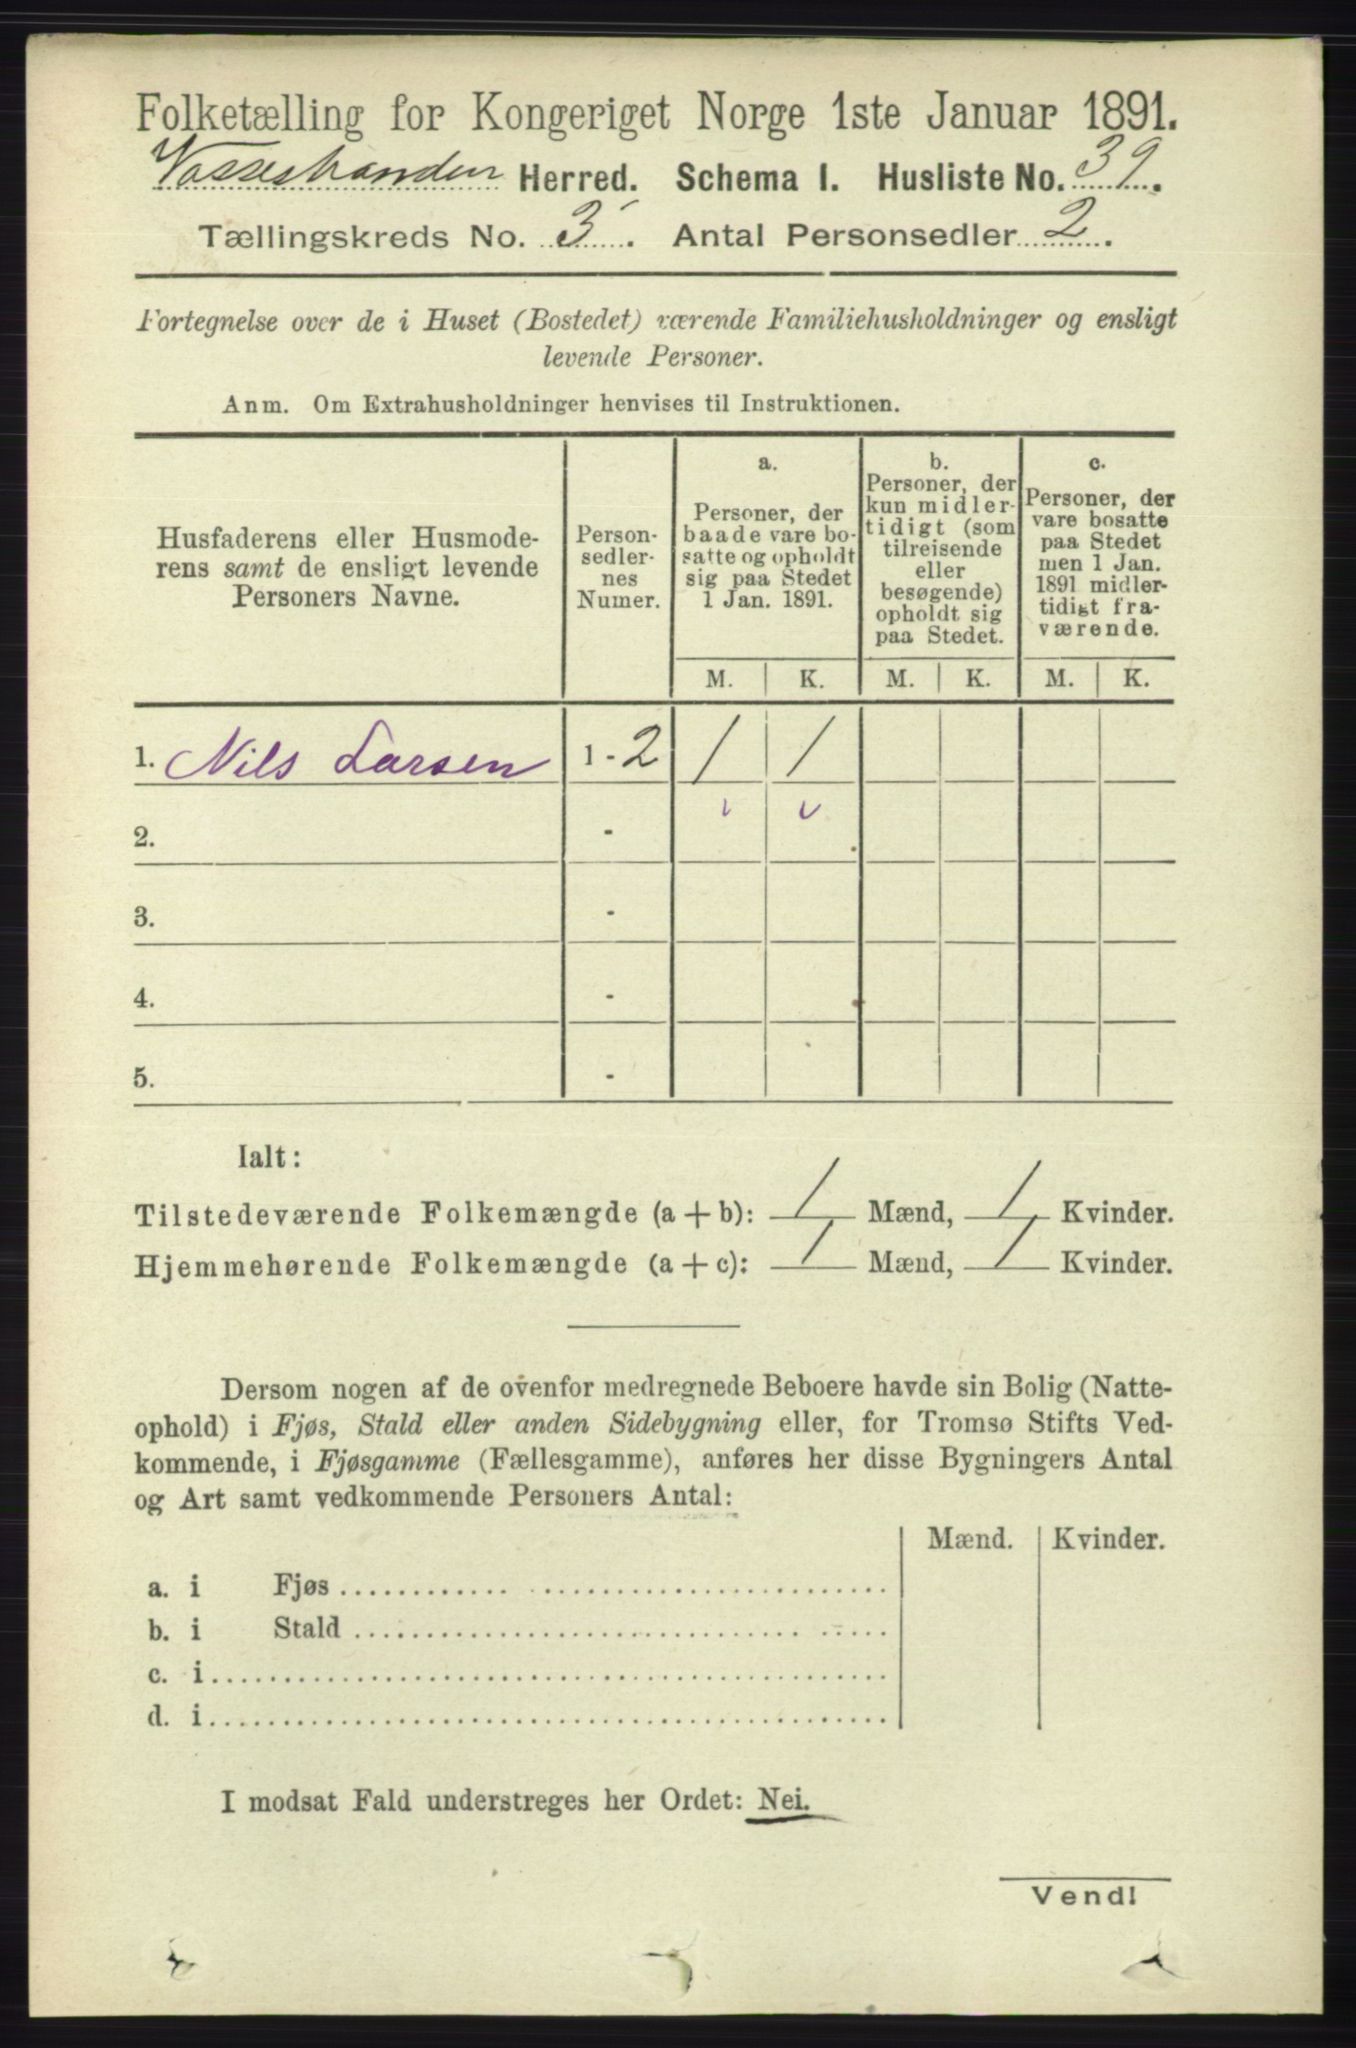 Folketælling for Kongeriget Norge 1ste Januar 1891.
Vossestranden Herred. Schema I. Husliste No. 39.
Tællingskreds No. 3. Antal Personsedler 2.
Fortegnelse over de i Huset (Bostedet) værende Familiehusholdninger og ensligt
levende Personer.
Anm. Om Extrahusholdninger henvises til Instruktionen.
Husfaderens eller Husmode-
rens samt de ensligt levende
Personers Navne.
Person-
sedler-
nes
Numer.
a.
Personer, der
baade vare bo-
satte og opholdt
sig paa Stedet
1 Jan. 1891.
b.
Personer, der
kun midler-
tidigt (som
tilreisende
eller
besøgende)
opholdt sig
paa Stedet.
c.
Personer, der
vare bosatte
paa Stedet
men 1 Jan.
1891 midler-
tidigt fra-
værende.
M. K. M. K. M. K.
1. Nils Larsen 1 - 2 1 1
2. -
3. -
4. -
5. -
Ialt:
Tilstedeværende Folkemængde (a + b): 1 Mænd, 1 Kvinder.
Hjemmehørende Folkemængde (a + c): 1 Mænd, 1 Kvinder.
Dersom nogen af de ovenfor medregnede Beboere havde sin Bolig (Natte-
ophold) i Fjøs, Stald eller anden Sidebygning eller, for Tromsø Stifts Ved-
kommende, i Fjøsgamme (Fællesgamme), anføres her disse Bygningers Antal
og Art samt vedkommende Personers Antal:
Mænd. Kvinder.
a. i Fjøs
b. i Stald
c. i
d. i
I modsat Fald understreges her Ordet: Nei.
Vend!